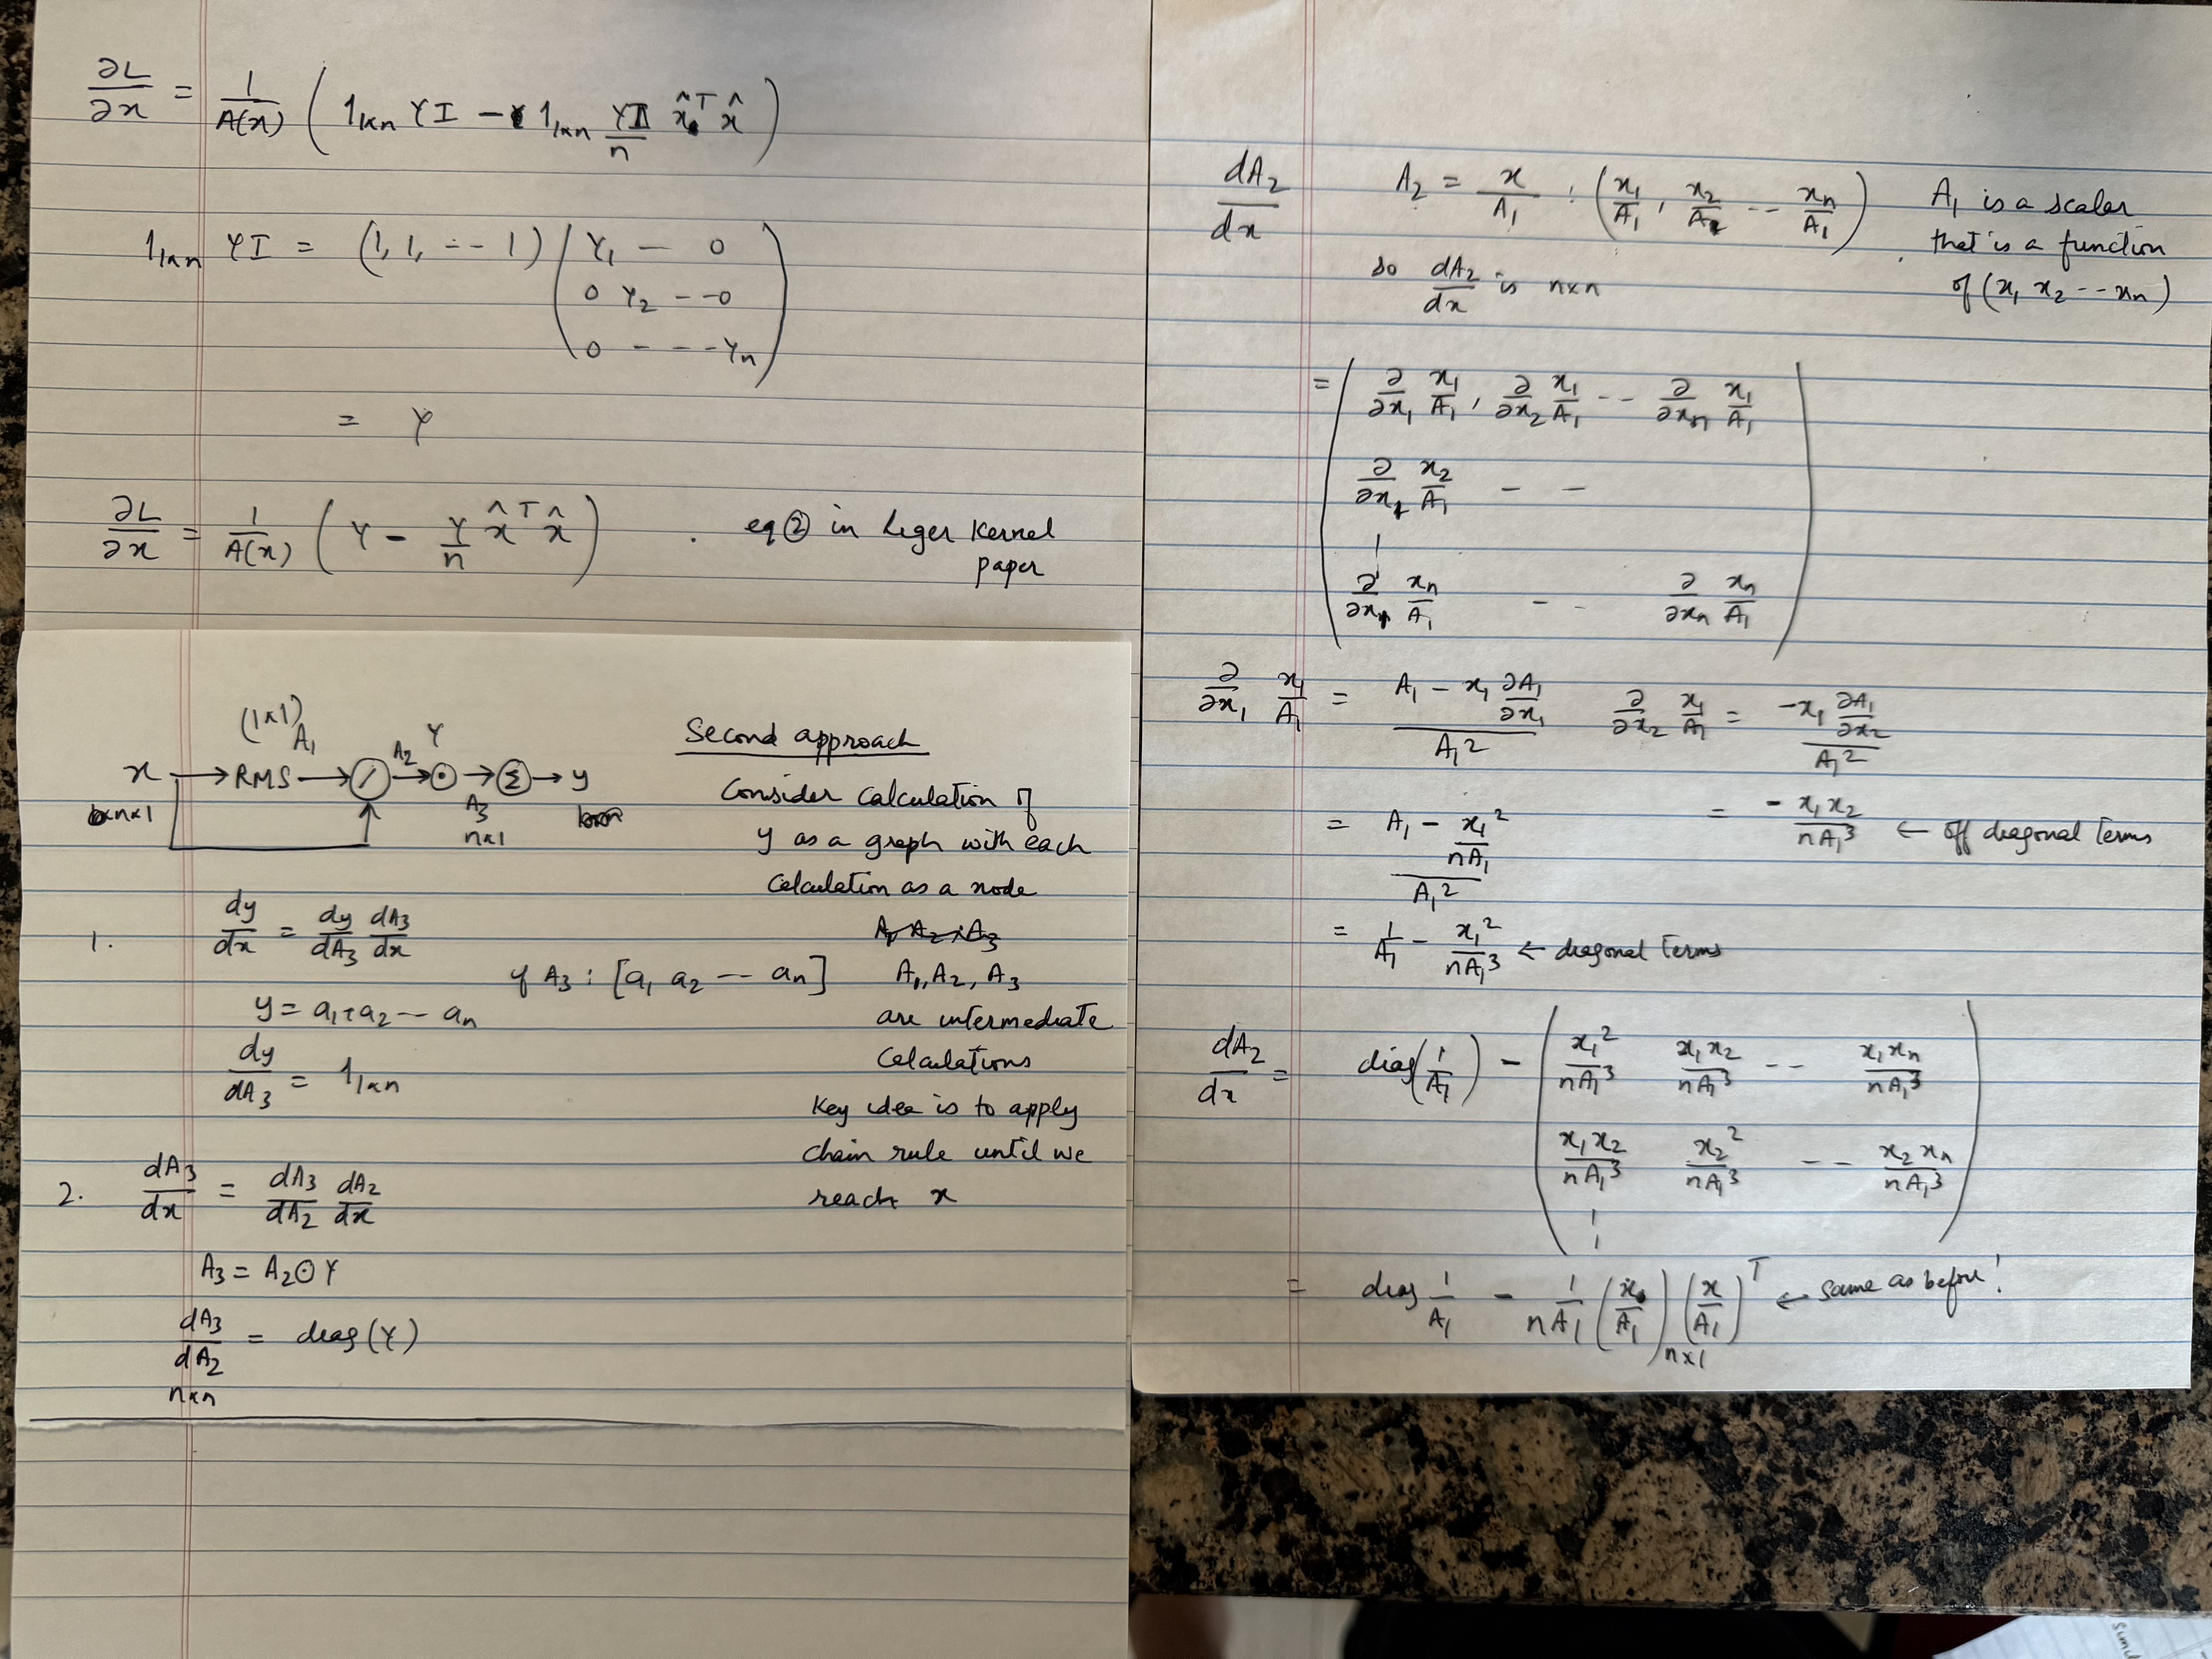 ∂L/∂x = 1/A(x) ( 1_{1×n} γI − 1_{1×n} γI/n x̂ᵀ x̂ )
1_{1×n} γI = (1, 1, -- 1) ( γ₁ — 0
0 γ₂ -- 0
0 - - - γₙ )
= γ
∂L/∂x = 1/A(x) ( γ − γ/n x̂ᵀ x̂ ) . eq ② in Liger Kernel
paper
(1×1)
A₁ A₂ γ
x → RMS → / → ⊙ → Σ → y
n×1 A₃
n×1
Second approach
Consider calculation of
y as a graph with each
calculation as a node
A₁, A₂, A₃
A₁, A₂, A₃
are intermediate
calculations
Key idea is to apply
chain rule until we
reach x
1. dy/dx = dy/dA₃ dA₃/dx
if A₃ : [a₁ a₂ -- aₙ]
y = a₁+a₂ -- aₙ
dy/dA₃ = 1_{1×n}
2. dA₃/dx = dA₃/dA₂ dA₂/dx
A₃ = A₂ ⊙ γ
dA₃/dA₂ = diag(γ)
n×n
dA₂/dx A₂ = x/A₁ : ( x₁/A₁, x₂/A₁ -- xₙ/A₁ ) A₁ is a scalar
that is a function
of (x₁ x₂ -- xₙ)
so dA₂/dx is n×n
= ( ∂/∂x₁ x₁/A₁, ∂/∂x₂ x₁/A₁ -- ∂/∂xₙ x₁/A₁
∂/∂x₁ x₂/A₁ - -
|
∂/∂x₁ xₙ/A₁ - - ∂/∂xₙ xₙ/A₁ )
∂/∂x₁ x₁/A₁ = (A₁ − x₁ ∂A₁/∂x₁)/A₁² ∂/∂x₂ x₁/A₁ = (−x₁ ∂A₁/∂x₂)/A₁²
= (A₁ − x₁²/nA₁)/A₁² = − x₁x₂/nA₁³ ← off diagonal terms
= 1/A₁ − x₁²/nA₁³ ← diagonal terms
dA₂/dx = diag(1/A₁) − ( x₁²/nA₁³ x₁x₂/nA₁³ -- x₁xₙ/nA₁³
x₁x₂/nA₁³ x₂²/nA₁³ -- x₂xₙ/nA₁³
| )
= diag 1/A₁ − 1/nA₁ (x/A₁)_{n×1} (x/A₁)ᵀ ← same as before!